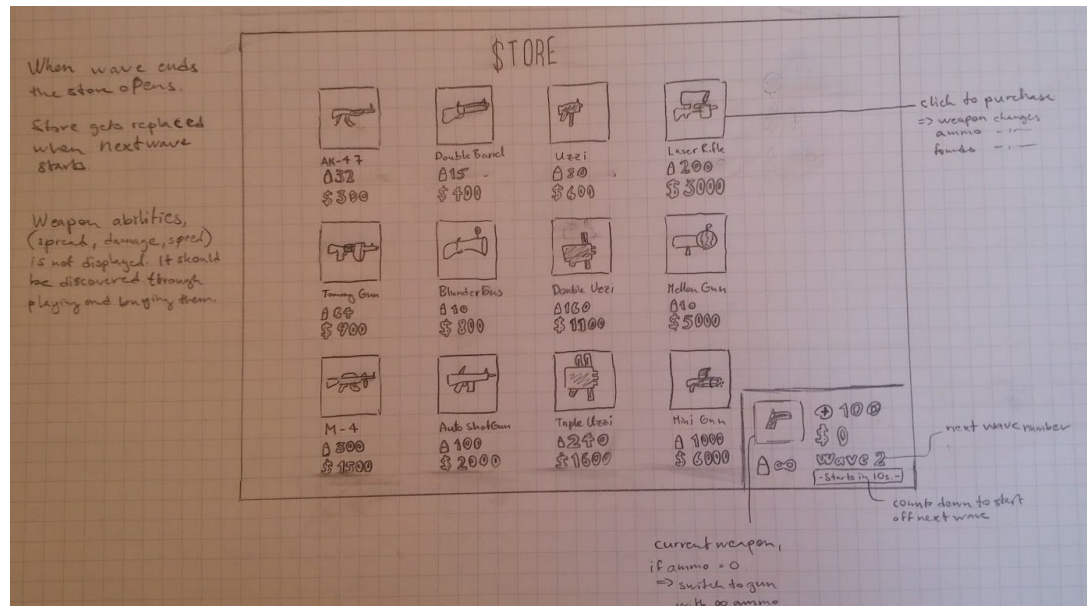 When wave ends
the store opens.
Store gets replaced
when next wave
starts.
Weapon abilities,
(spread, damage, speed)
is not displayed. It should
be discovered through
playing and buying them.
$TORE
AK-47
32
$300
Double Barrel
15
$400
Uzzi
80
$600
Laser Rifle
200
$3000
Tommy Gun
64
$900
Blunderbus
10
$800
Double Uzzi
160
$1100
Mellon Gun
10
$5000
M-4
300
$1500
Auto Shotgun
100
$2000
Triple Uzzi
240
$1600
Mini Gun
1000
$6000
100
$0
∞
Wave 2
-Starts in 10s.-
click to purchase
=> weapon changes
ammo -"-
founds -"-
next wave number
count down to start
off next wave
current weapon,
if ammo = 0
=> switch to gun
with ∞ ammo